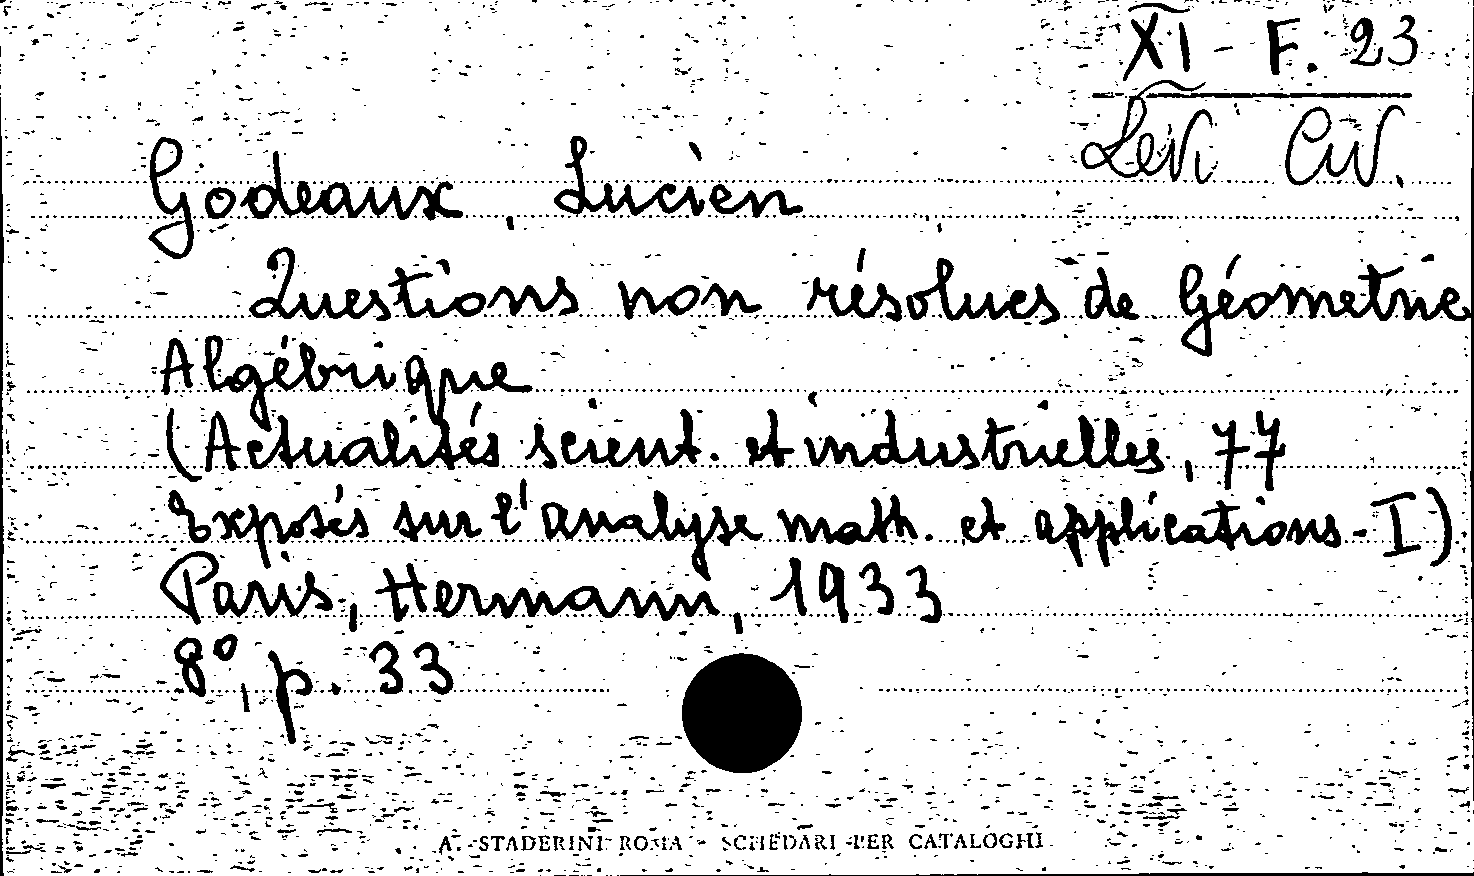 XI - F. 23
Levi Civ.
Godeaux, Lucien
Questions non résolues de Géometrie
Algébrique
(Actualités scient. et industrielles, 77
Exposés sur l'analyse math. et applications - I)
Paris, Hermann, 1933
8°, p. 33
A. STADERINI ROMA - SCHEDARI PER CATALOGHI